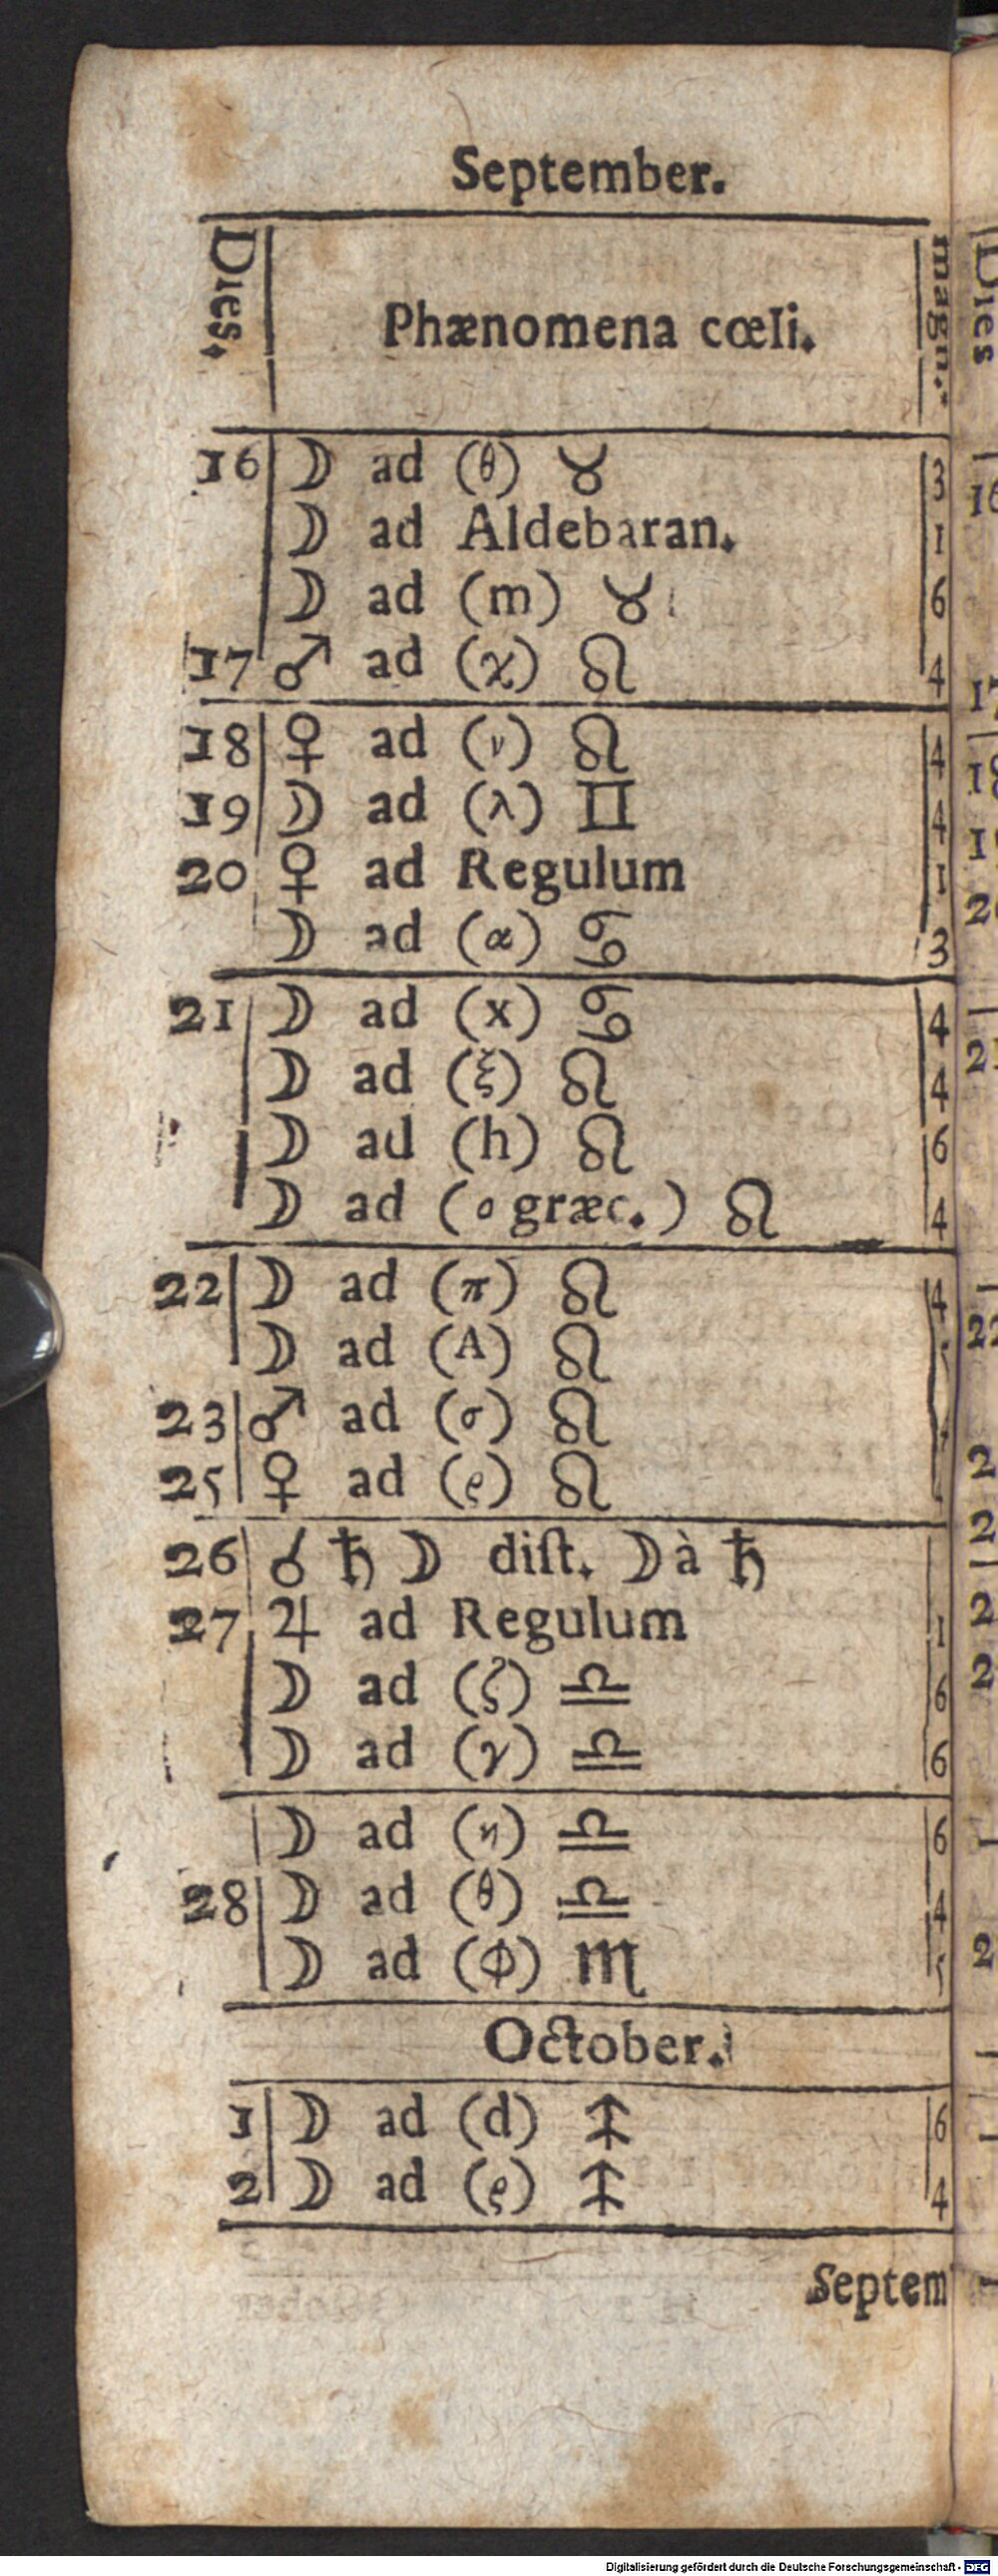 September.
Dies. Phænomena cœli. magn.
16 ☽ ad (θ) ♉ 3
☽ ad Aldebaran. 1
☽ ad (m) ♉ 6
17 ♂ ad (χ) ♌ 4
18 ♀ ad (ν) ♌ 4
19 ☽ ad (λ) ♊ 4
20 ♀ ad Regulum 1
☽ ad (α) ♋ 3
21 ☽ ad (x) ♋ 4
☽ ad (ξ) ♌ 4
☽ ad (h) ♌ 6
☽ ad (ο græc.) ♌ 4
22 ☽ ad (π) ♌ 4
☽ ad (A) ♌
23 ♂ ad (σ) ♌
25 ♀ ad (ϱ) ♌
26 ☌ ♄ ☽ diſt. ☽ à ♄
27 ♃ ad Regulum 1
☽ ad (ζ) ♎ 6
☽ ad (γ) ♎ 6
☽ ad (η) ♎ 6
28 ☽ ad (θ) ♎ 4
☽ ad (Φ) ♏ 5
October.
1 ☽ ad (d) ♐ 6
2 ☽ ad (ϱ) ♐ 4
Septem
Dies
21
22
Digitalisierung gefördert durch die Deutsche Forschungsgemeinschaft - DFG